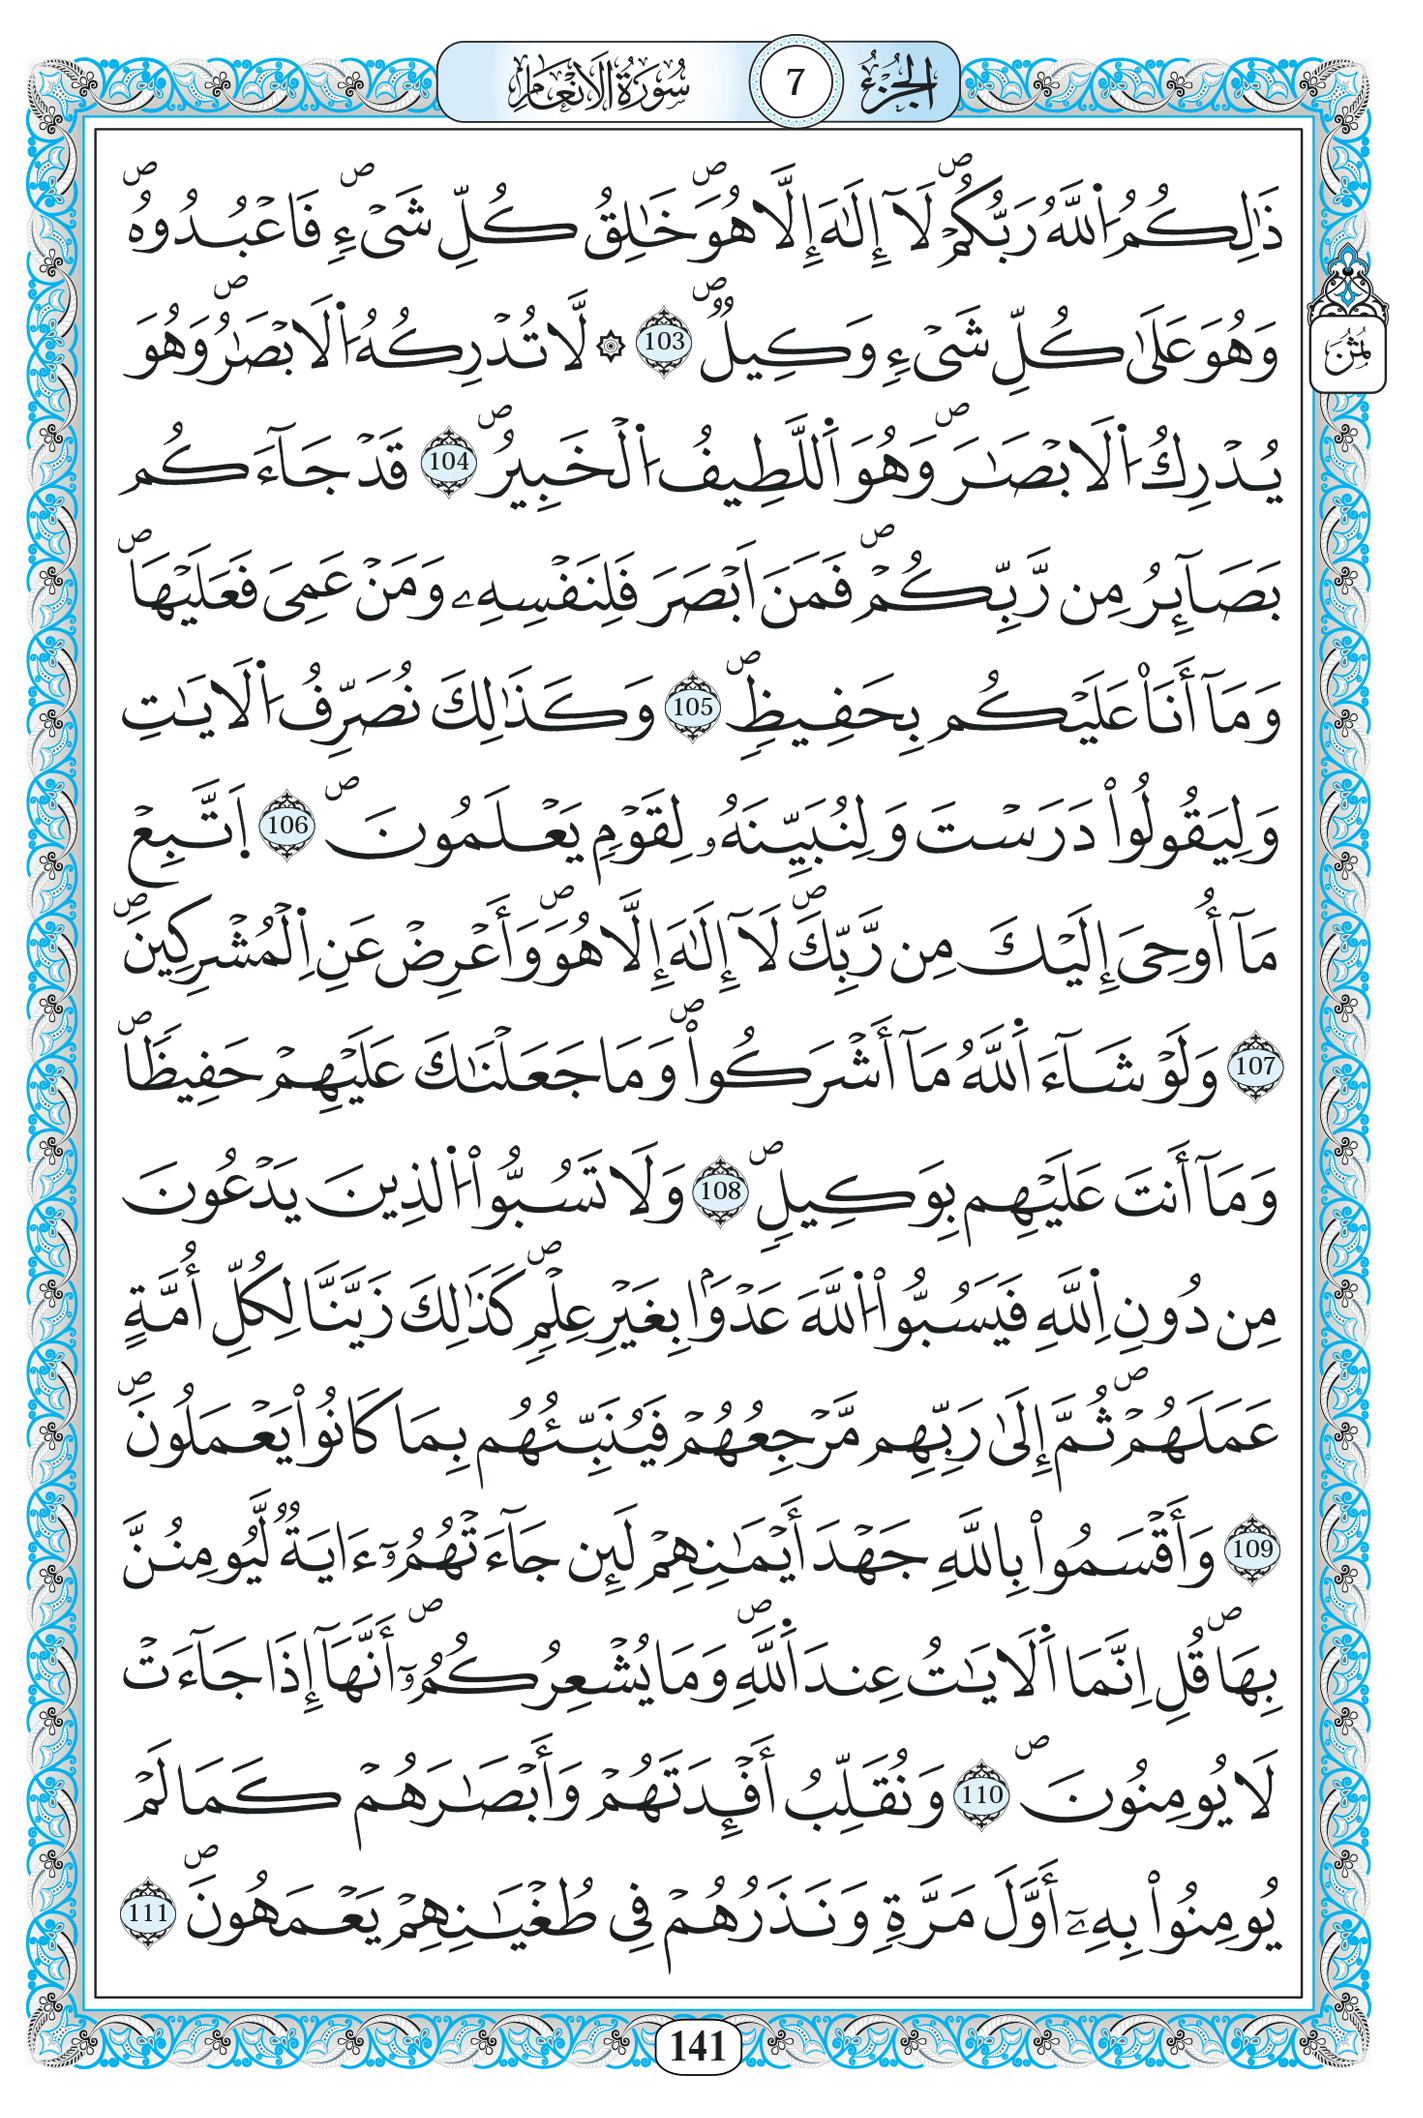 الجزء 7 سورة الانعام
ذَٰلِكُمُ اُ۬للَّهُ رَبُّكُمْۖ لَآ إِلَٰهَ إِلَّا هُوَۖ خَٰلِقُ كُلِّ شَےْءٖۖ فَاعْبُدُوهُۖ
وَهُوَ عَلَىٰ كُلِّ شَےْءٖ وَكِيلٞۖ 103 ۞ لَّا تُدْرِكُهُ اُ۬لَابْصَٰرُۖ وَهُوَ
ثمن
يُدْرِكُ اُ۬لَابْصَٰرَۖ وَهُوَ اَ۬للَّطِيفُ اُ۬لْخَبِيرُۖ 104 قَدْ جَآءَكُم
بَصَآئِرُ مِن رَّبِّكُمْۖ فَمَنَ اَبْصَرَ فَلِنَفْسِهِۦ وَمَنْ عَمِيَ فَعَلَيْهَاۖ
وَمَآ أَنَا۠ عَلَيْكُم بِحَفِيظٖۖ 105 وَكَذَٰلِكَ نُصَرِّفُ اُ۬لَايَٰتِ
وَلِيَقُولُواْ دَرَسْتَ وَلِنُبَيِّنَهُۥ لِقَوْمٖ يَعْلَمُونَۖ 106 اَ۪تَّبِعْ
مَآ أُوحِيَ إِلَيْكَ مِن رَّبِّكَۖ لَآ إِلَٰهَ إِلَّا هُوَۖ وَأَعْرِضْ عَنِ اِ۬لْمُشْرِكِينَۖ
107 وَلَوْ شَآءَ اَ۬للَّهُ مَآ أَشْرَكُواْۖ وَمَا جَعَلْنَٰكَ عَلَيْهِمْ حَفِيظاٗۖ
وَمَآ أَنتَ عَلَيْهِم بِوَكِيلٖۖ 108 وَلَا تَسُبُّواْ اُ۬لذِينَ يَدْعُونَ
مِن دُونِ اِ۬للَّهِ فَيَسُبُّواْ اُ۬للَّهَ عَدْوَاۢ بِغَيْرِ عِلْمٖۖ كَذَٰلِكَ زَيَّنَّا لِكُلِّ أُمَّةٍ
عَمَلَهُمْۖ ثُمَّ إِلَىٰ رَبِّهِم مَّرْجِعُهُمْ فَيُنَبِّئُهُم بِمَا كَانُواْ يَعْمَلُونَۖ
109 وَأَقْسَمُواْ بِاللَّهِ جَهْدَ أَيْمَٰنِهِمْ لَئِن جَآءَتْهُمُۥٓ ءَايَةٞ لَّيُومِنُنَّ
بِهَاۖ قُلِ اِنَّمَا اَ۬لَايَٰتُ عِندَ اَ۬للَّهِۖ وَمَا يُشْعِرُكُمُۥٓۖ أَنَّهَآ إِذَا جَآءَتْ
لَا يُومِنُونَۖ 110 وَنُقَلِّبُ أَفْـِٕدَتَهُمْ وَأَبْصَٰرَهُمْ كَمَا لَمْ
يُومِنُواْ بِهِۦٓ أَوَّلَ مَرَّةٖ وَنَذَرُهُمْ فِي طُغْيَٰنِهِمْ يَعْمَهُونَۖ 111
141